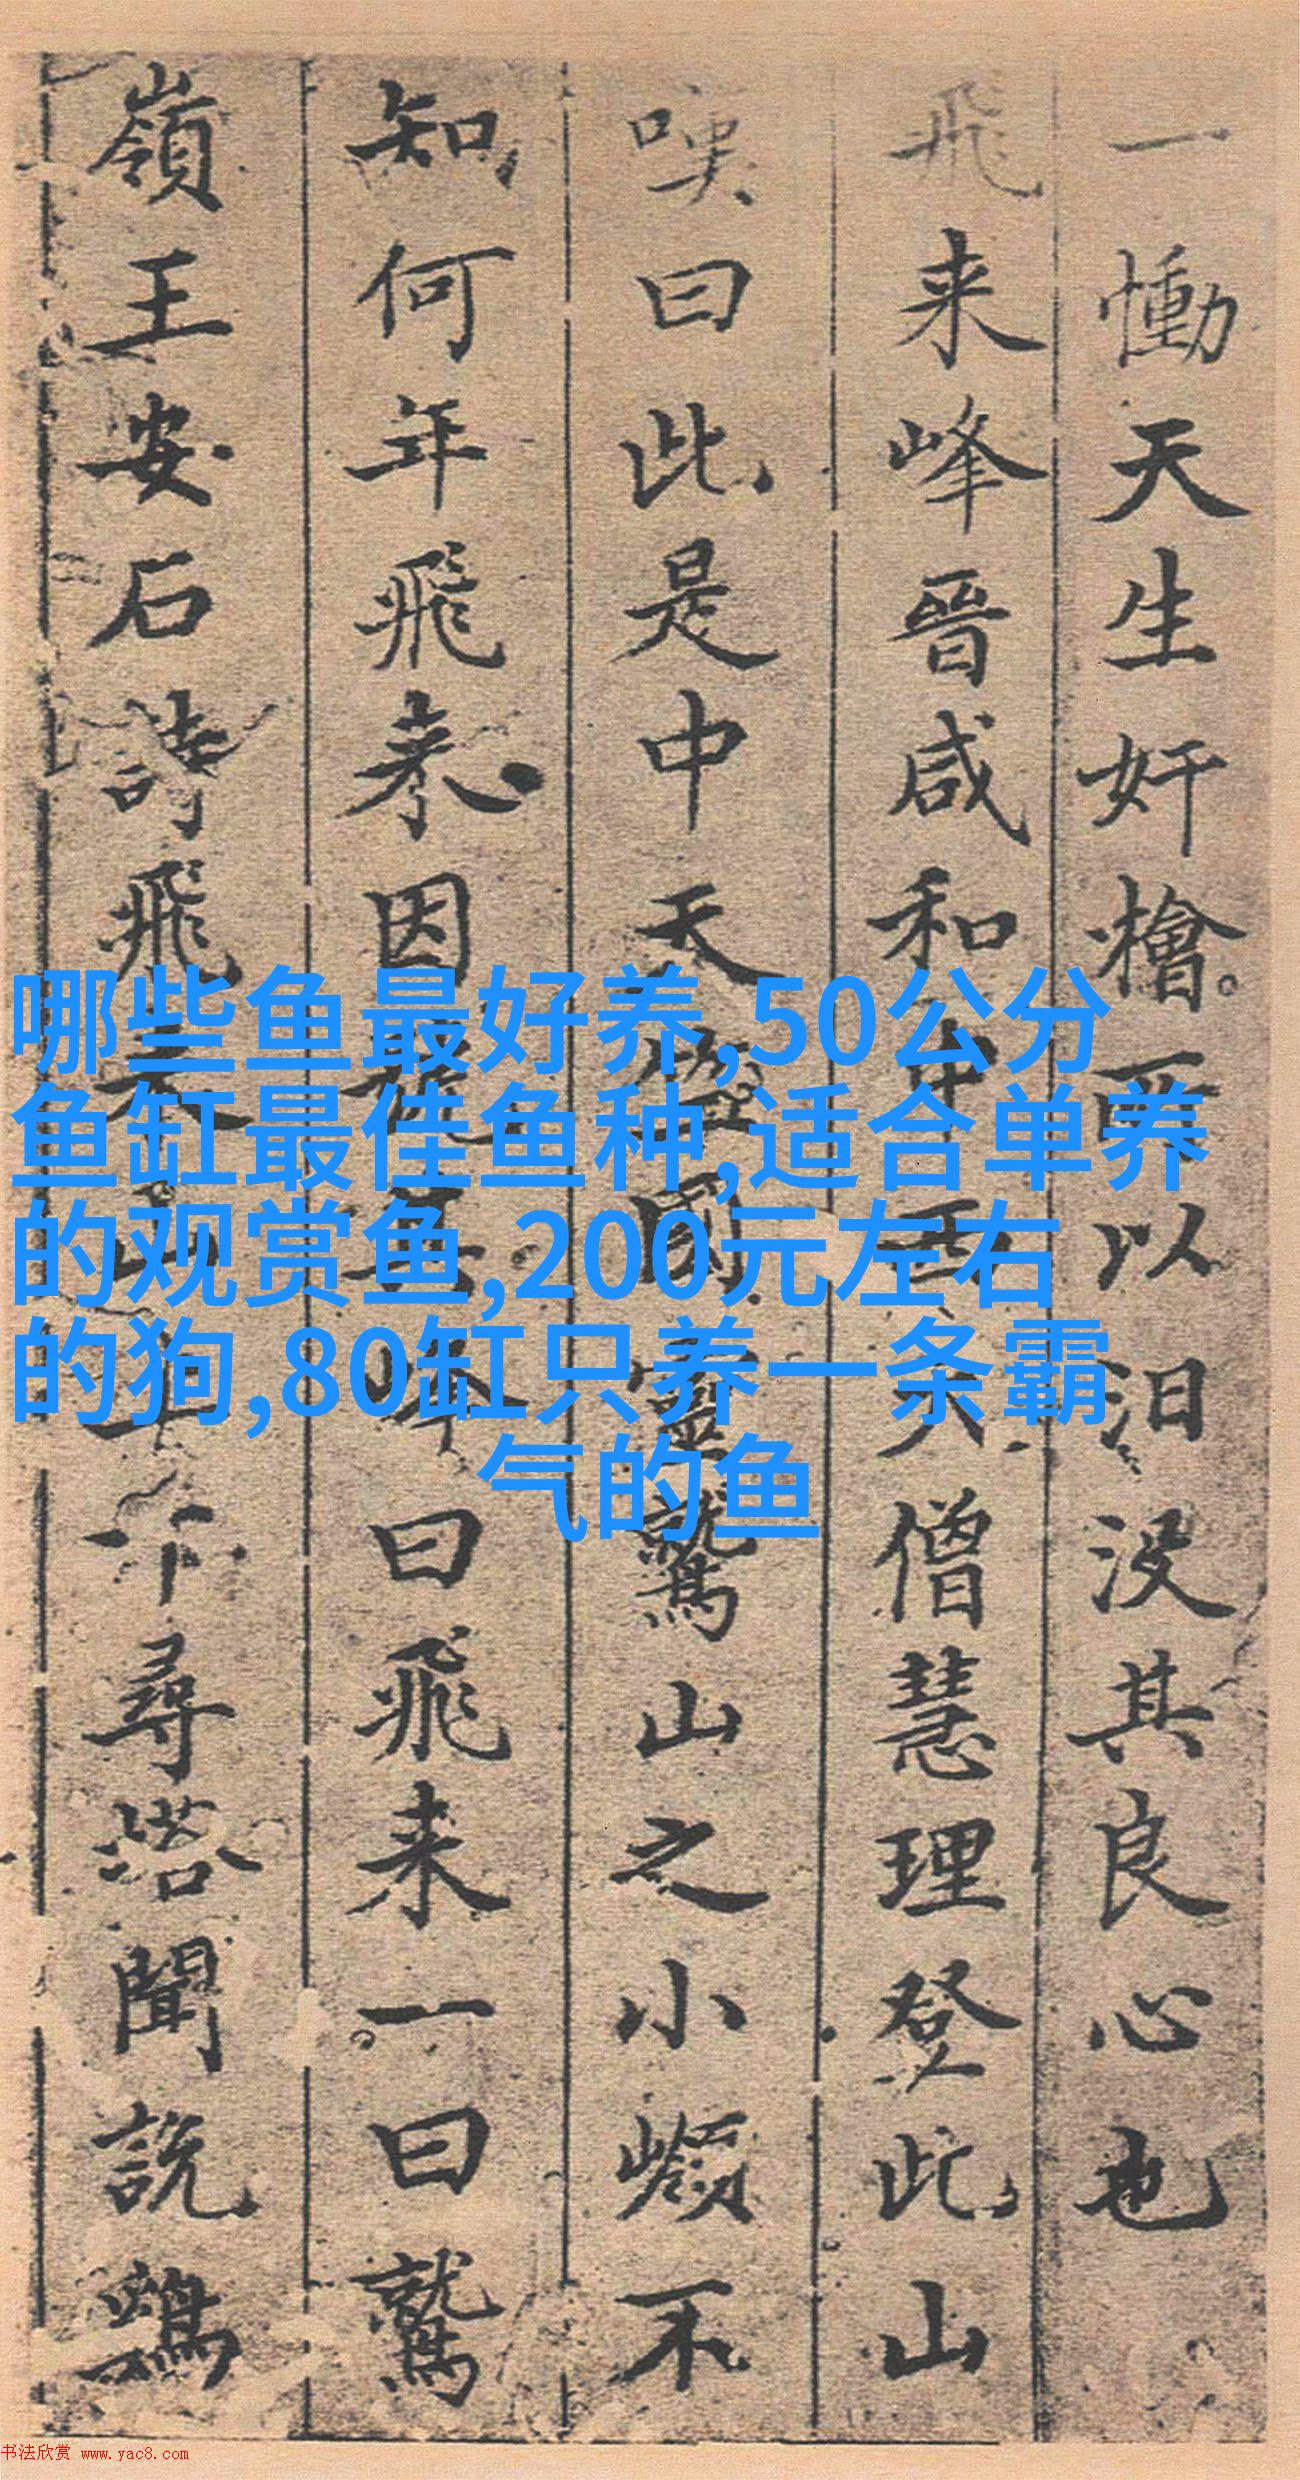 一慟天生奸檜
以汩没其良心也
飛来峰晉咸和中西
僧慧理登此山
嘆曰此是中天
國
鷲山之小嶺不
知何年飛来因
曰飛来一曰鷲
嶺王安石詩飛
千尋塔聞說鷄
哪些鱼最好养,50公分
鱼缸最佳鱼种,适合单养
的观赏鱼,200元左右
的狗,80缸只养一条霸
气的鱼
书法欣赏 www.yac8.com